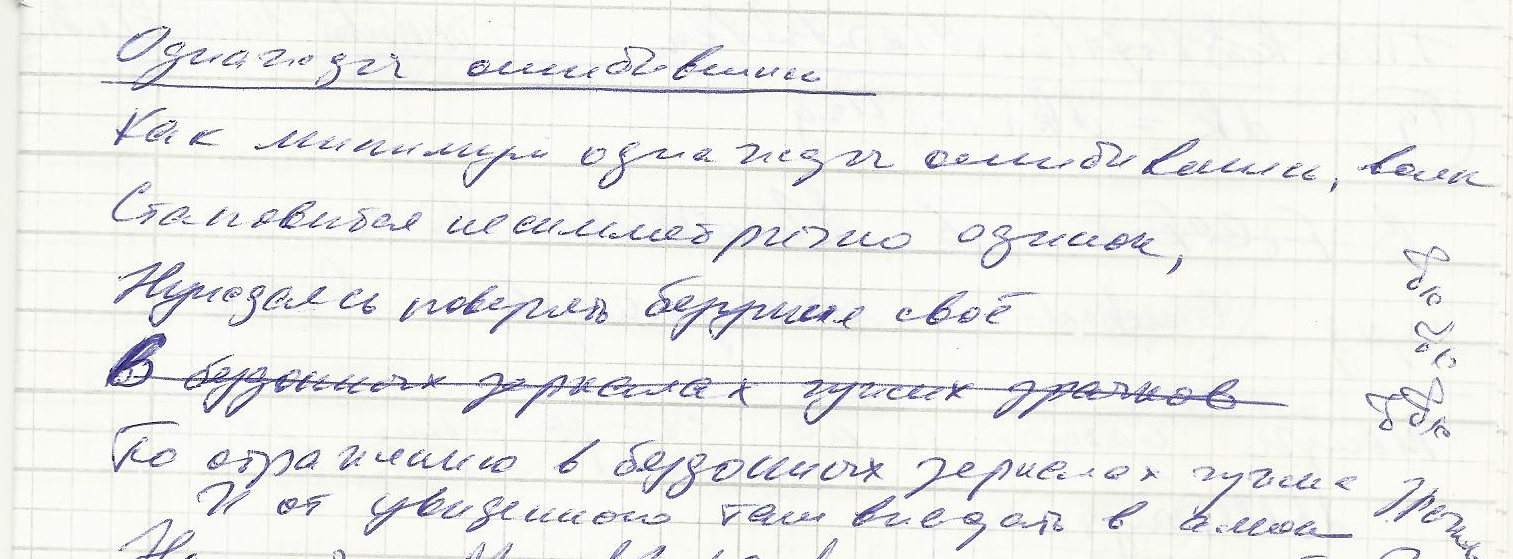 Однажды ошибившись
Как минимум однажды ошибившись, волк
Становится несимметрично одинок,
Нуждаясь поверять безумие своё
В бездонных зеркалах чужих зрачков
По отражению в бездонных зеркалах чужих
И от увиденного там впадать в амок